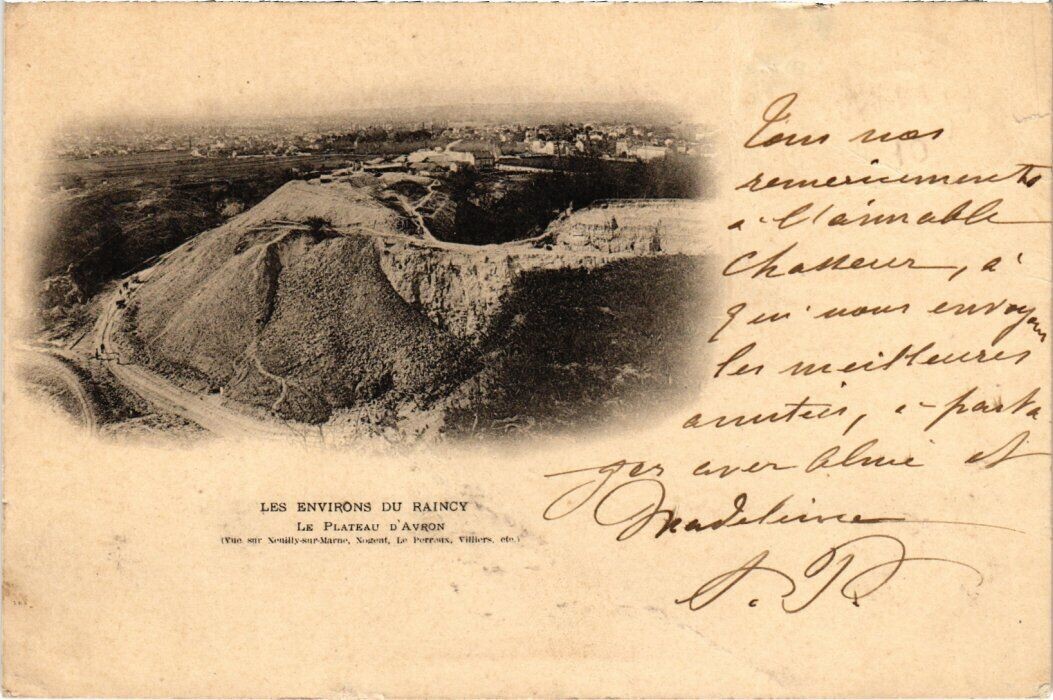 Tous nos
remerciements
à l'aimable
Chasseur, à
qui nous envoyons
les meilleures
amitiés, à parta
ger avec Aline et
Madeleine
LES ENVIRONS DU RAINCY
LE PLATEAU D'AVRON
(Vue sur Neuilly-sur-Marne, Nogent, Le Perreux, Villiers, etc.)